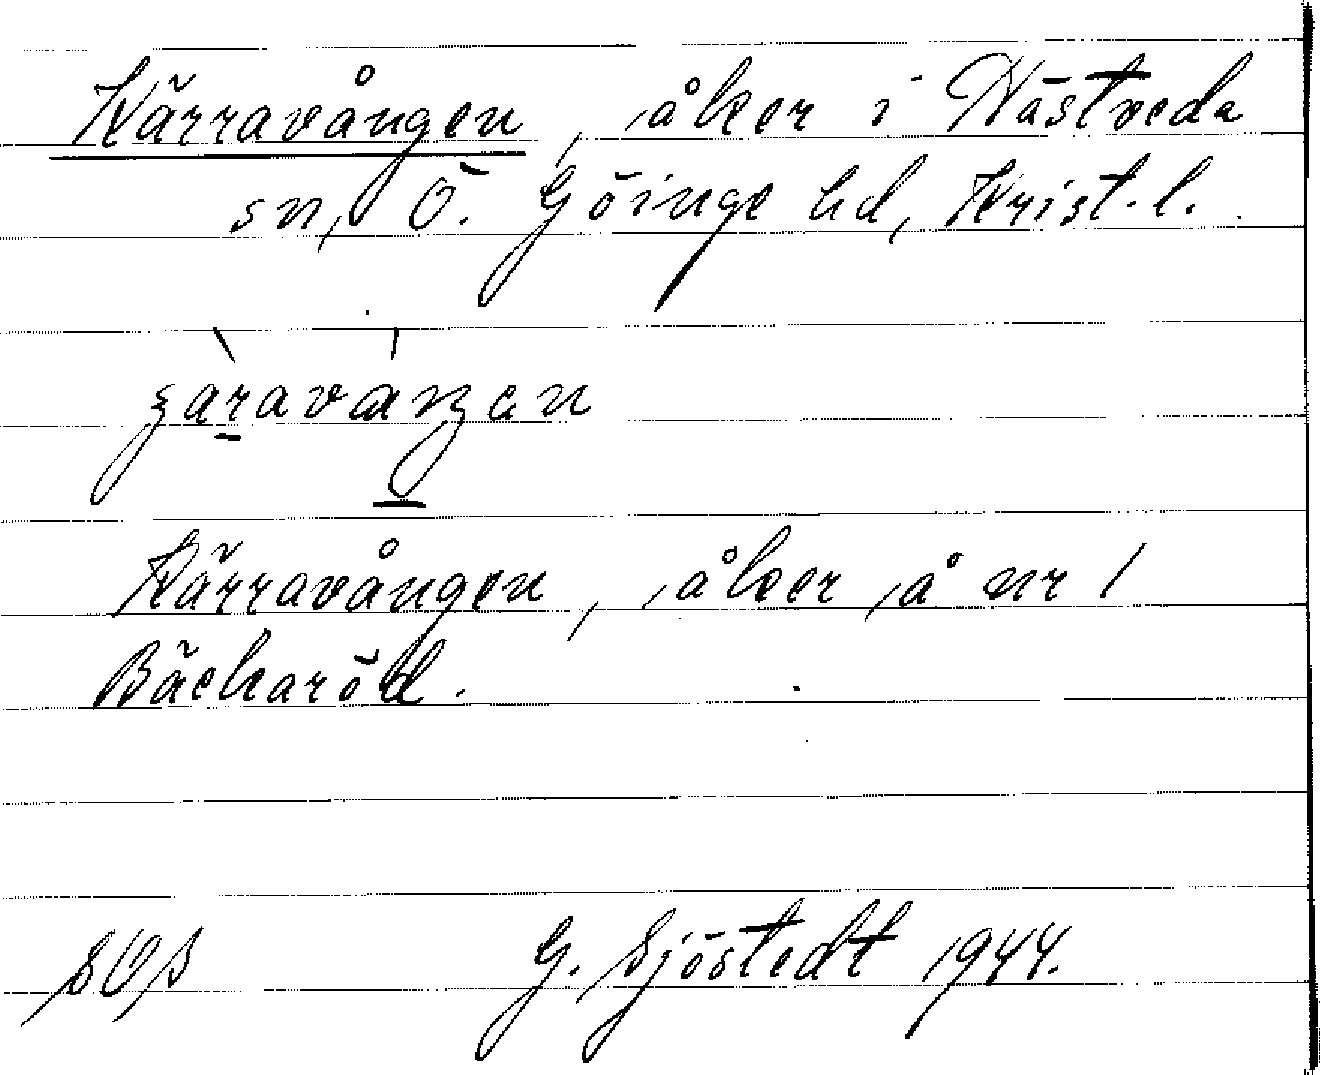 Kärravången, åker i Hästveda
sn, Ö. Göinge hd, Krist. l.
Kärravången, åker å nr 1
Bäckaröd.
G. Sjöstedt 1944.